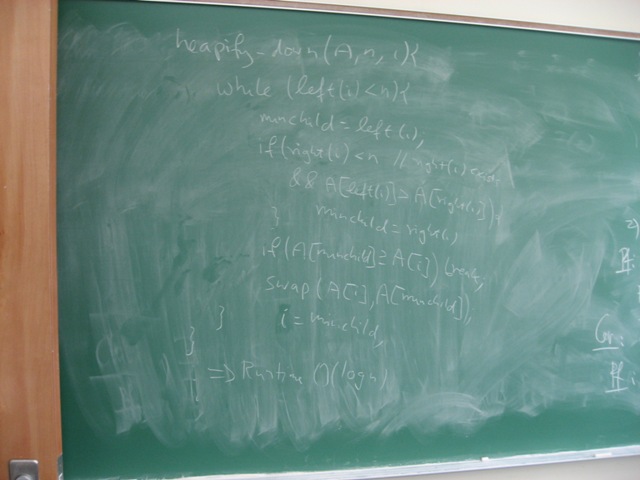 heapify-down(A, n, i){
while (left(i)<n){
minchild = left(i);
if(right(i)<n // right(i) exists
&& A[left(i)]>A[right(i)]){
minchild = right(i)
}
if (A[minchild]≥A[i]) break;
swap(A[i], A[minchild]);
i = minchild;
}
}
=> Runtime O(log n)
2)
Pf:
Cor:
Pf: